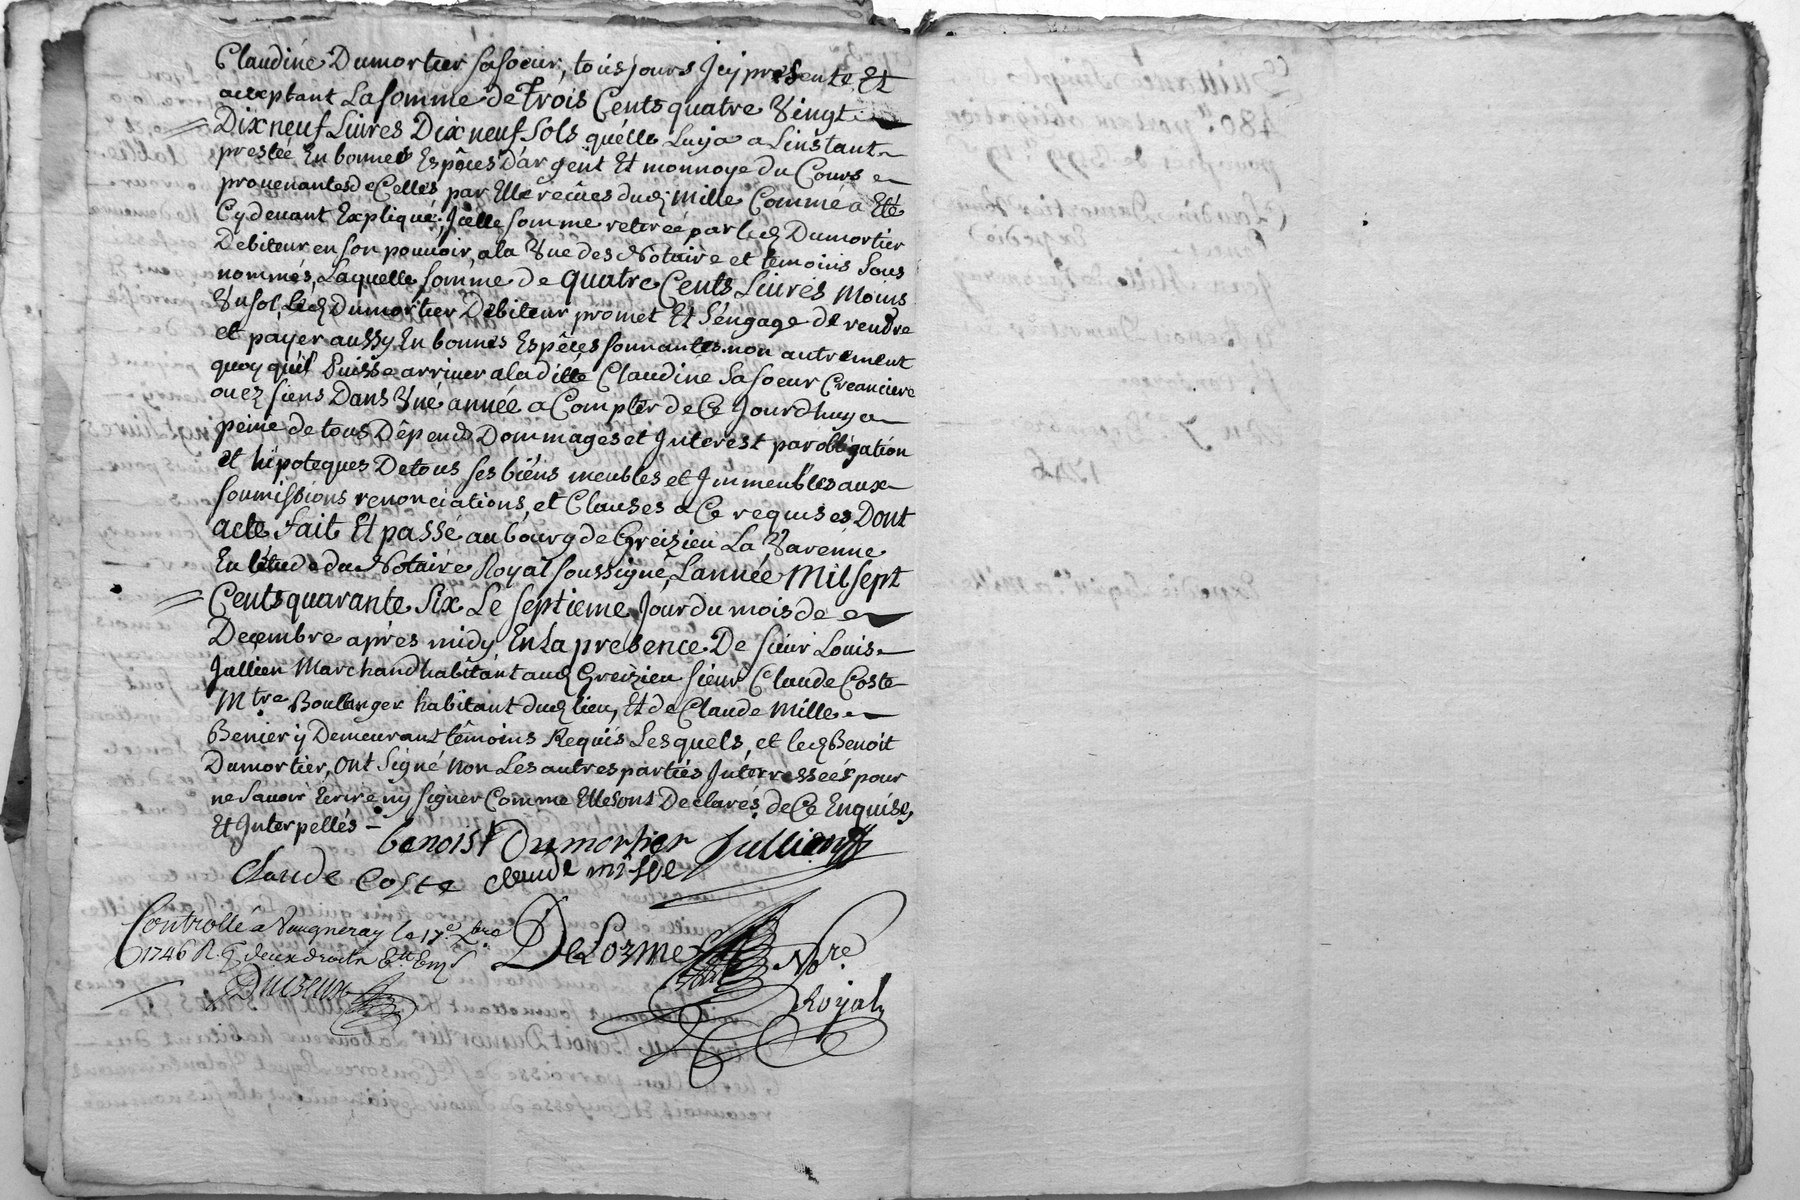 Claudine Dumortier sa soeur, tousjours Icy presente Et
acceptant La somme de Trois Cents quatre Vingt
Dix neuf Livres Dix neuf Sols quélle Luy a a Linstant
prestée En bonnes Espêces D'argent Et monnoye du Cours
provenantes de Celles par Elle recües dud Mille Comme a Eté
Cy devant Expliqué; Icelle somme retirée par led Dumortier
Debiteur en son pouvoir, a la Vue des Notaire et temoins sous
nommés, Laquelle somme de quatre Cents Livres Moins
Un sol, Led Dumortier Debiteur promet Et S'éngage de rendre
et payer aussy En bonnes Espêces sonnantes non autrement
quoy quil Puisse arriver a la ditte Claudine sa soeur Creanciere
ou ez siens Dans Une année a Compter de Ce Jourdhuy a
peine de tous Dêpends Dommages et Interest par obligation
et hipoteques De tous ses biens meubles et Immeubles aux
soumissions renonciations, et Clauses a Ce requises, Dont
acte, Fait Et passé au bourg de Greizieu La Varenne
En létude du Notaire Royal soussigné, L'année Mil Sept
Cents quarante Six Le Septieme Jour du mois de
Decembre après midy En La presence De sieur Louis
Jullien Marchand habitant aud Greizieu sieur Claude Coste
Mtre Boulanger habitant dud lieu, Et de Claude Mille
Benier y Demeurant têmoins Requis Lesquels, et led Benoit
Dumortier, Ont Signé Non Les autres parties Interressées pour
ne Savoir Ecrire ny signer Comme Elles ont Declarés, de Ce Enquises
Et Interpellés –
benoist Dumortier Jullien
Claude Coste claude mille
Controllé a Vaugneray le 17e Xbre
1746 R.
DeLorme Nore
Royal